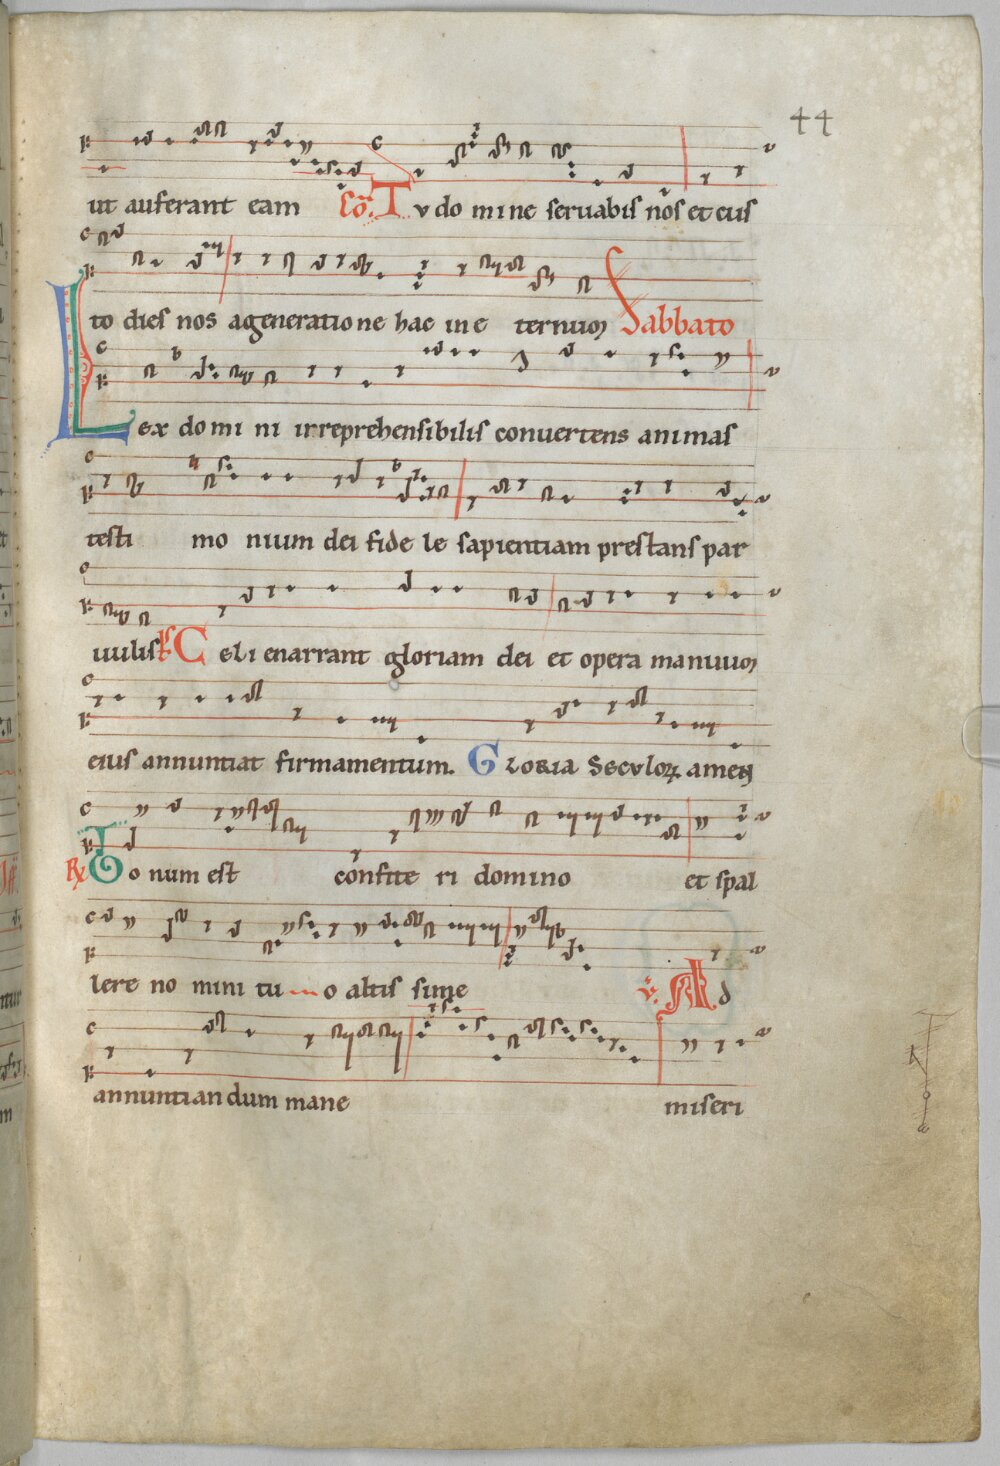 44
ut auferant eam Cō. Tu domine seruabis nos et cus
to dies nos a generatione hac in e ternum Sabbato
Lex domi ni irreprehensibilis conuertens animas
testi mo nium dei fide le sapientiam prestans par
uulis Ps Celi enarrant gloriam dei et opera manuum
eius annuntiat firmamentum. Gloria Seculoꝝ amen
R Bonum est confite ri domino et psal
lere no mini tu o altis sime V. Ad
annuntiandum mane miseri